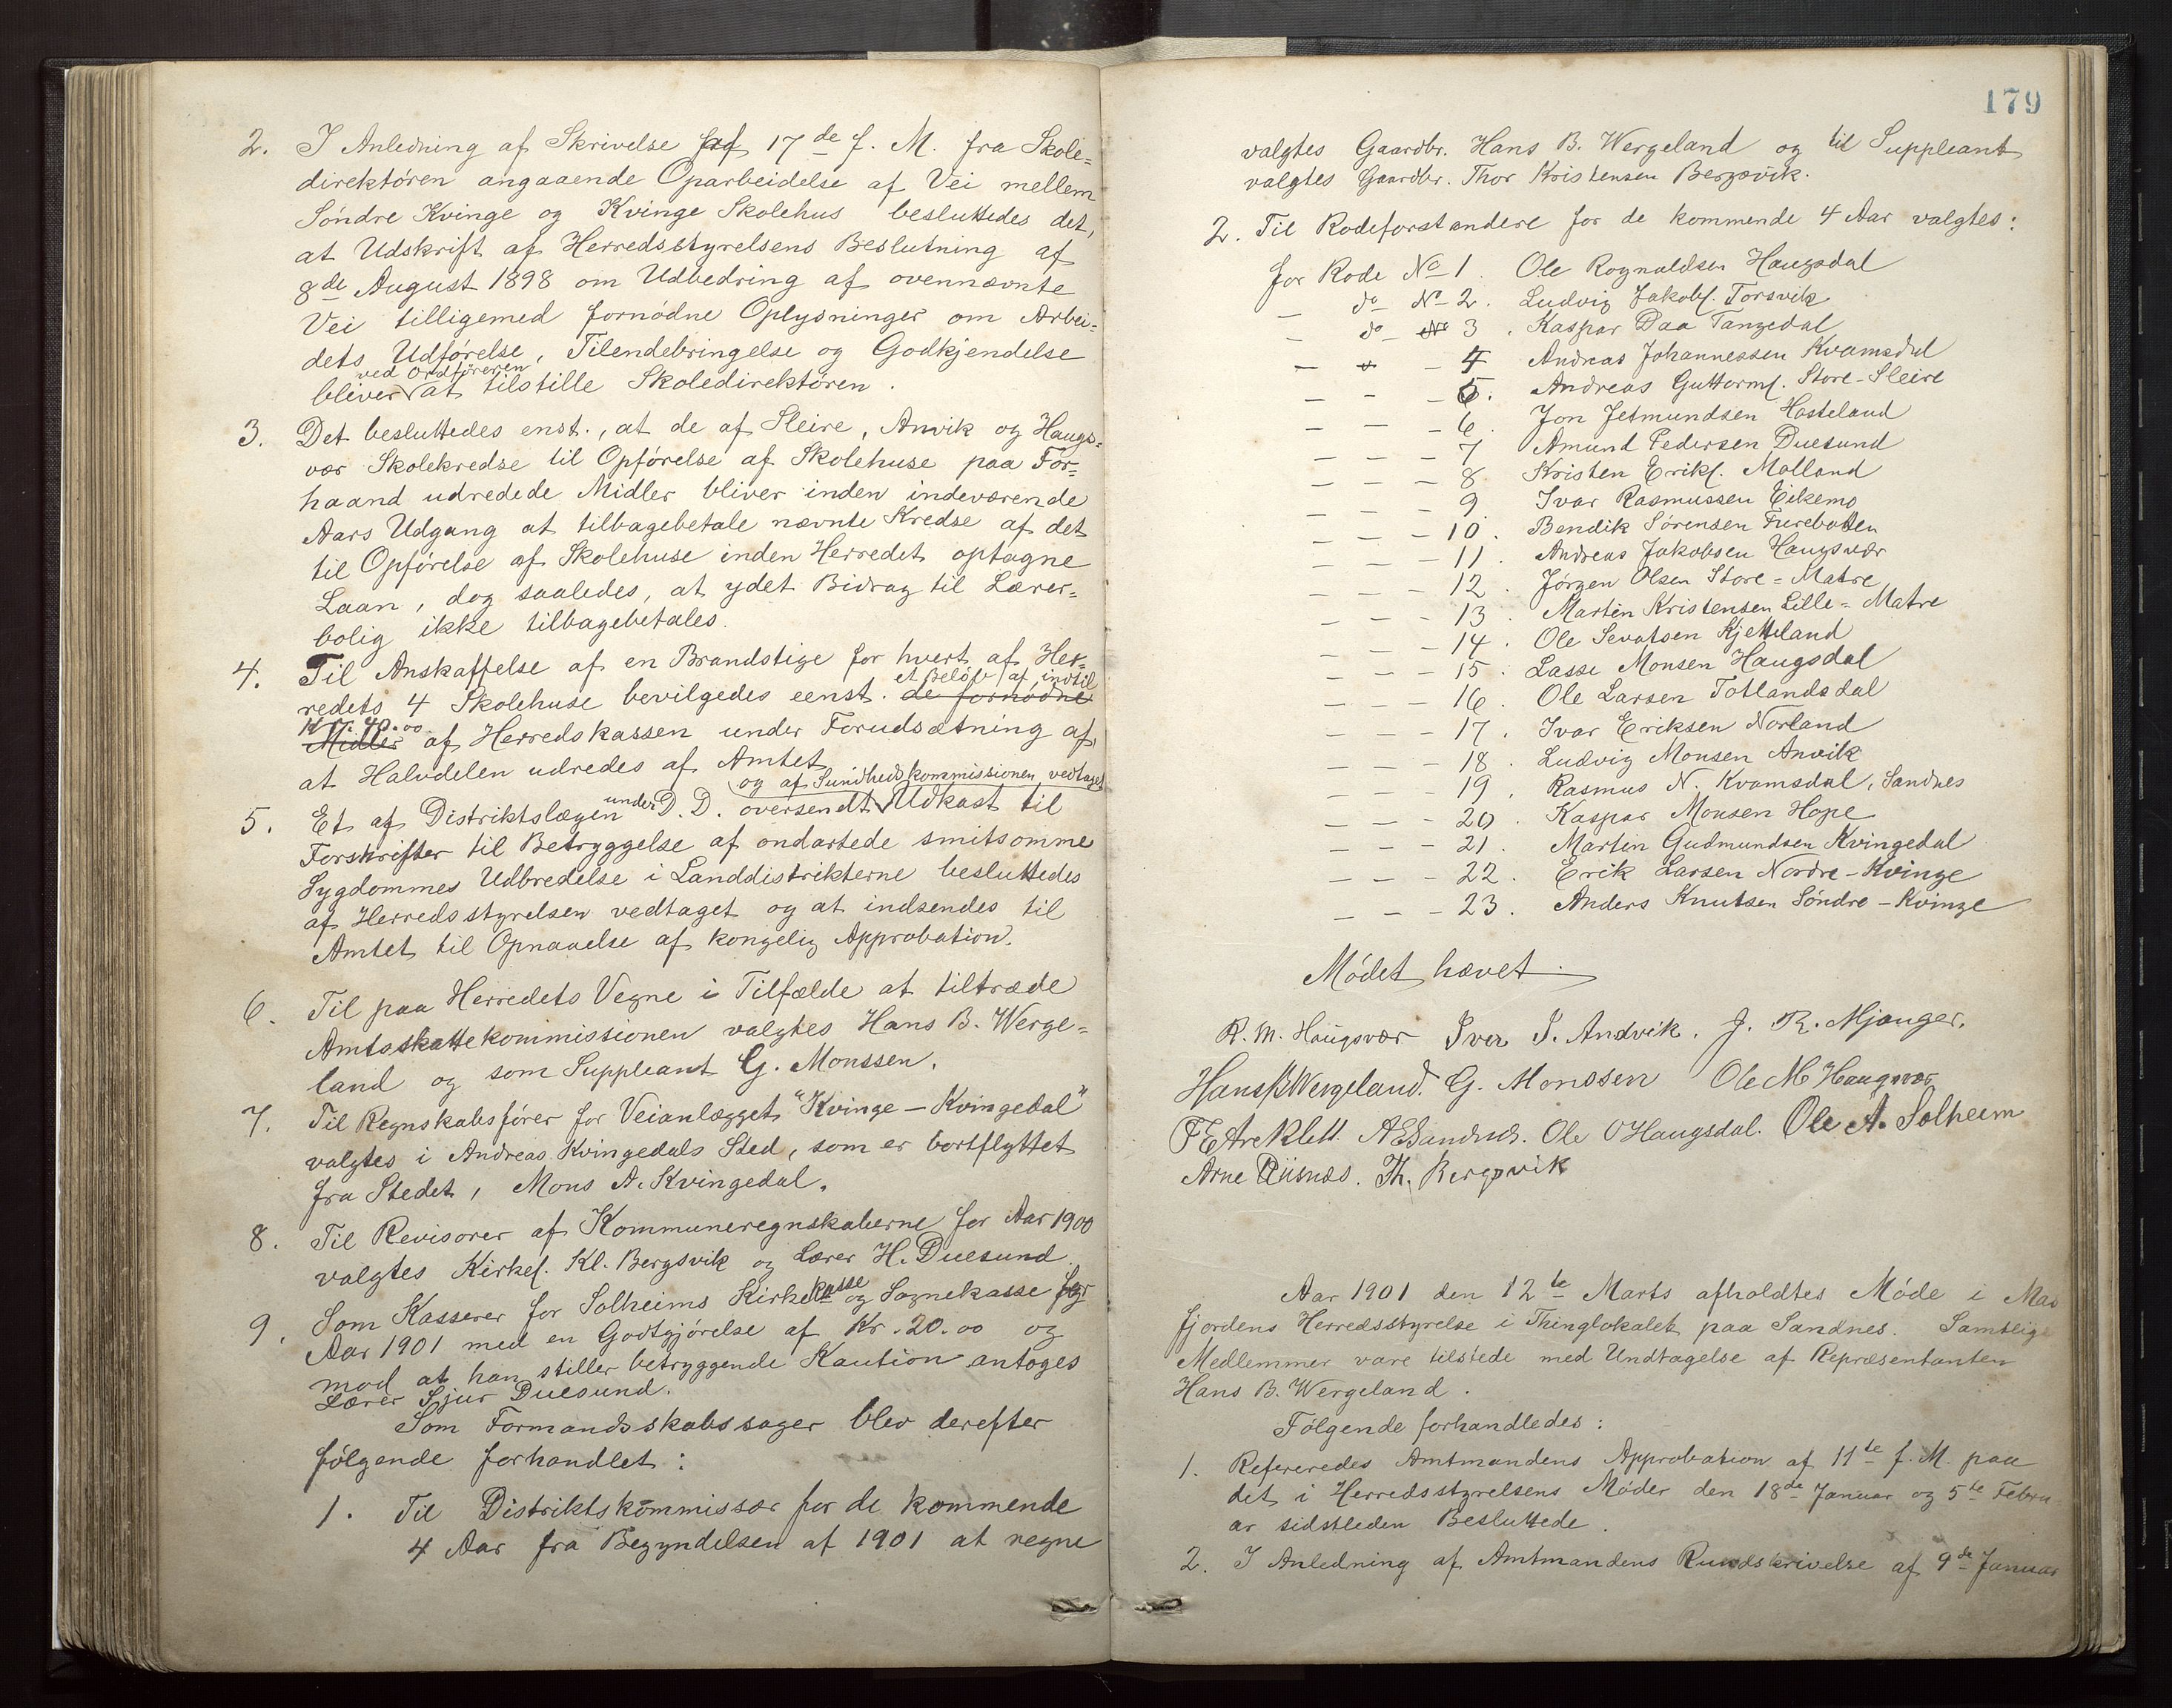 2. I Anledning af Skrivelse af 17de f. M. fra Skole=
direktören angaaende Oparbeidelse af Vei mellem
Söndre Kvinge og Kvinge Skolehus besluttedes det,
at Udskrift af Herredsstyrelsens Beslutning af
8de August 1898 om Udbedring af ovennævnte
Vei tilligemed fornödne Oplysninger om Arbei=
dets Udförelse, Tilendebringelse og Godkjendelse
ved Ordföreren
bliver at tilstille Skoledirektören.
3. Det besluttedes enst., at de af Sleire, Anvik og Haugs=
vær Skolekredse til Opförelse af Skolehuse paa For=
haand udredede Midler bliver inden indeværende
Aars Udgang at tilbagebetale nævnte Kredse af det
til Opförelse af Skolehuse inden Herredet optagne
Laan, dog saaledes, at ydet Bidrag til Lærer=
bolig ikke tilbagebetales.
4. Til Anskaffelse af en Brandstige for hvert af Her=
et Belöb af indtil
redets 4 Skolehuse bevilgedes eenst. de fornödne
Kr. 40.00
Midler af Herredskassen under Forudsætning af,
at Halvdelen udredes af Amtet.
og af Sundhedskommissionen vedtaget
5. Et af Distriktslægen under D. D. oversendt Udkast til
Forskrifter til Betryggelse af ondartede smitsomme
Sygdommes Udbredelse i Landdistrikterne besluttedes
af Herredsstyrelsen vedtaget og at indsendes til
Amtet til Opnaaelse af kongelig Approbation.
6. Til paa Herredets Vegne i Tilfælde at tiltræde
Amtsskattekommissionen valgtes Hans B. Werge=
land og som Suppleant G. Monssen.
7. Til Regnskabsfører for Veianlægget "Kvinge — Kvingedal"
valgtes i Andreas Kvingedals Sted, som er bortflyttet
fra Stedet, Mons A. Kvingedal.
8. Til Revisorer af Kommuneregnskaberne for Aar 1900
valgtes Kirkes. Kl. Bergsvik og Lærer H. Duesund.
9. Som Kasserer for Solheims Kirkekasse og Sognekasse for
Aar 1901 med en Godtgjörelse af Kr. 20.00 og
mod at han stiller betryggende Kaution antoges
Lærer Sjur Duesund.
Som Formandsskabssager blev derefter
fölgende forhandlet:
1. Til Distriktskommissær for de kommende
4 Aar fra Begyndelsen af 1901 at regne
179
valgtes Gaardbr. Hans B. Wergeland og til Suppleant
valgtes Gaardbr. Thor Kristensen Bergsvik.
2. Til Rodeforstandere for de kommende 4 Aar valgtes:
for Rode No 1. Ole Rognaldsen Haugsdal
— do No 2. Ludvig Jakobs. Torsvik
— do No 3. Kaspar Daa Tangedal
— — — 4 Andreas Johannessen Kvamsdal
— — — 5. Andreas Guttorms. Store-Sleire
— — — 6 Jon Jetmundsen Hosteland
— — — 7 Amund Pedersen Duesund
— — — 8 Kristen Eriks. Molland
— — — 9 Ivar Rasmussen Eikemo
— — — 10. Bendik Sörensen Furebotten
— — — 11. Andreas Jakobsen Haugsvær
— — — 12. Jörgen Olsen Store=Matre
— — — 13. Martin Kristensen Lille=Matre
— — — 14. Ole Sevatsen Kjetteland
— — — 15. Lasse Monsen Haugsdal
— — — 16. Ole Larsen Totlandsdal
— — — 17. Ivar Eriksen Norland
— — — 18. Ludvig Monsen Anvik
— — — 19. Rasmus N. Kvamsdal, Sandnes
— — — 20. Kaspar Monsen Hope
— — — 21. Martin Gudmundsen Kvingedal
— — — 22. Erik Larsen Nordre-Kvinge
— — — 23. Anders Knutsen Söndre-Kvinge
Mödet hævet.
R. M. Haugsvær Iver I. Andvik. J. R. Mjanger.
Hans B Wergeland. G. Monssen Ole M Haugsvær
A E Sandnes. Ole O Haugsdal. Ole A. Solheim
Arne Riisnæs. Th. Bergsvik
Aar 1901 den 12te Marts afholdtes Möde i Mas
fjordens Herredsstyrelse i Thinglokalet paa Sandnes. Samtlige
Medlemmer vare tilstede med Undtagelse af Repræsentanten
Hans B. Wergeland.
Fölgende forhandledes:
1. Refereredes Amtmandens Approbation af 11te f. M. paa
det i Herredsstyrelsens Möder den 18de Januar og 5te Febru
ar sidstleden Besluttede.
2. I Anledning af Amtmandens Rundskrivelse af 9de Januar